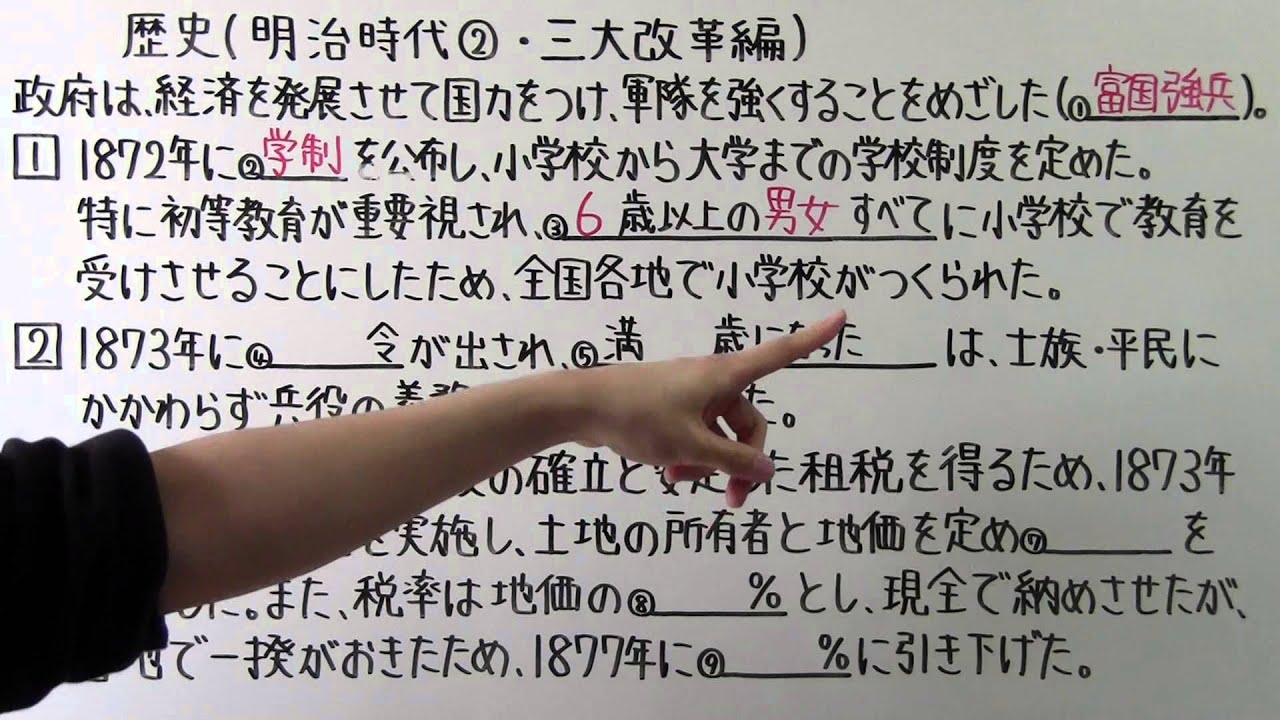 歴史(明治時代②・三大改革編)
政府は、経済を発展させて国力をつけ、軍隊を強くすることをめざした(①富国強兵)。
1 1872年に②学制を公布し、小学校から大学までの学校制度を定めた。
特に初等教育が重要視され、③6歳以上の男女すべてに小学校で教育を
受けさせることにしたため、全国各地で小学校がつくられた。
2 1873年に④ 令が出され、⑤満 歳になった は、士族・平民に
かかわらず兵役の義務 た。
の確立と安定した租税を得るため、1873年
を実施し、土地の所有者と地価を定め⑦ を
した。また、税率は地価の⑧ %とし、現金で納めさせたが、
地で一揆がおきたため、1877年に⑨ %に引き下げた。